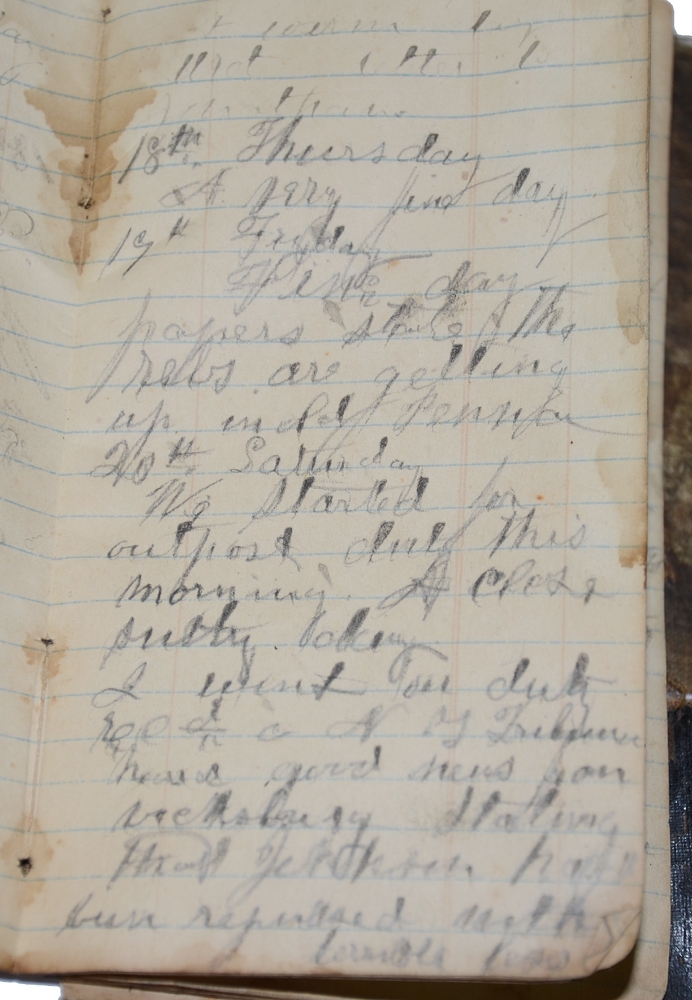 that
18th Thursday
A very fine day
19th Fryday
Fine day
papers state the
rebs are getting
up in old Pennsa
20th Saturday
We started for
outpost duty this
morning. A close
sultry today
I went on duty
recd a N Y Tribune
have good news from
vicksburg Stating
that Johnson have
been repulsed with
terrible loss